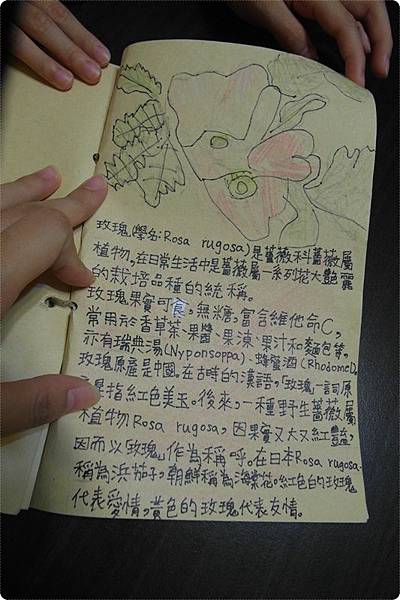 玫瑰(學名:Rosa rugosa)是薔薇科薔薇屬
植物。在日常生活中是薔薇屬一系列花大艷麗
的栽培品種的統稱。
玫瑰果實可食,無糖,富含維他命C,
常用於香草茶、果醬、果凍、果汁和麵包等,
亦有瑞典湯(Nyponsoppa)、蜂蜜酒(Rhodomel)。
玫瑰原產是中國。在古時的漢語,「玫瑰」一詞原
意是指紅色美玉。後來,一種野生薔薇屬
植物Rosa rugosa,因果實又大又紅豔,
因而以「玫瑰」作為稱呼。在日本Rosa rugosa
稱為浜茄子,朝鮮稱為海棠花。紅色白的玫瑰
代表愛情,黃色的玫瑰代表友情。